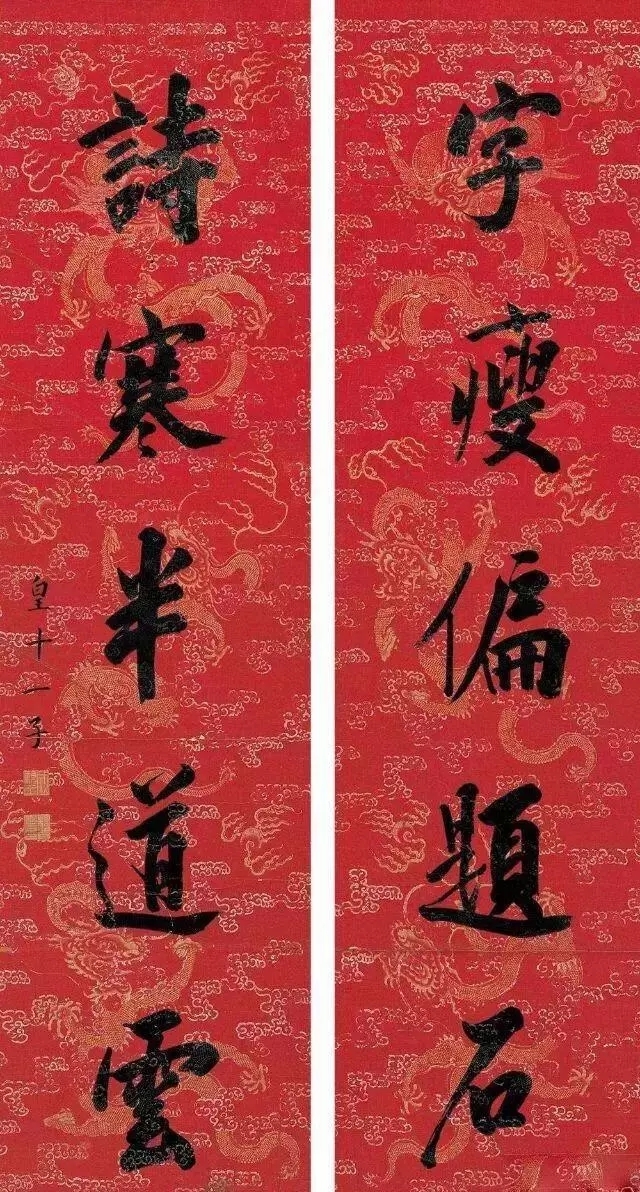 字瘦偏題石
詩寒半道雲
皇十一子